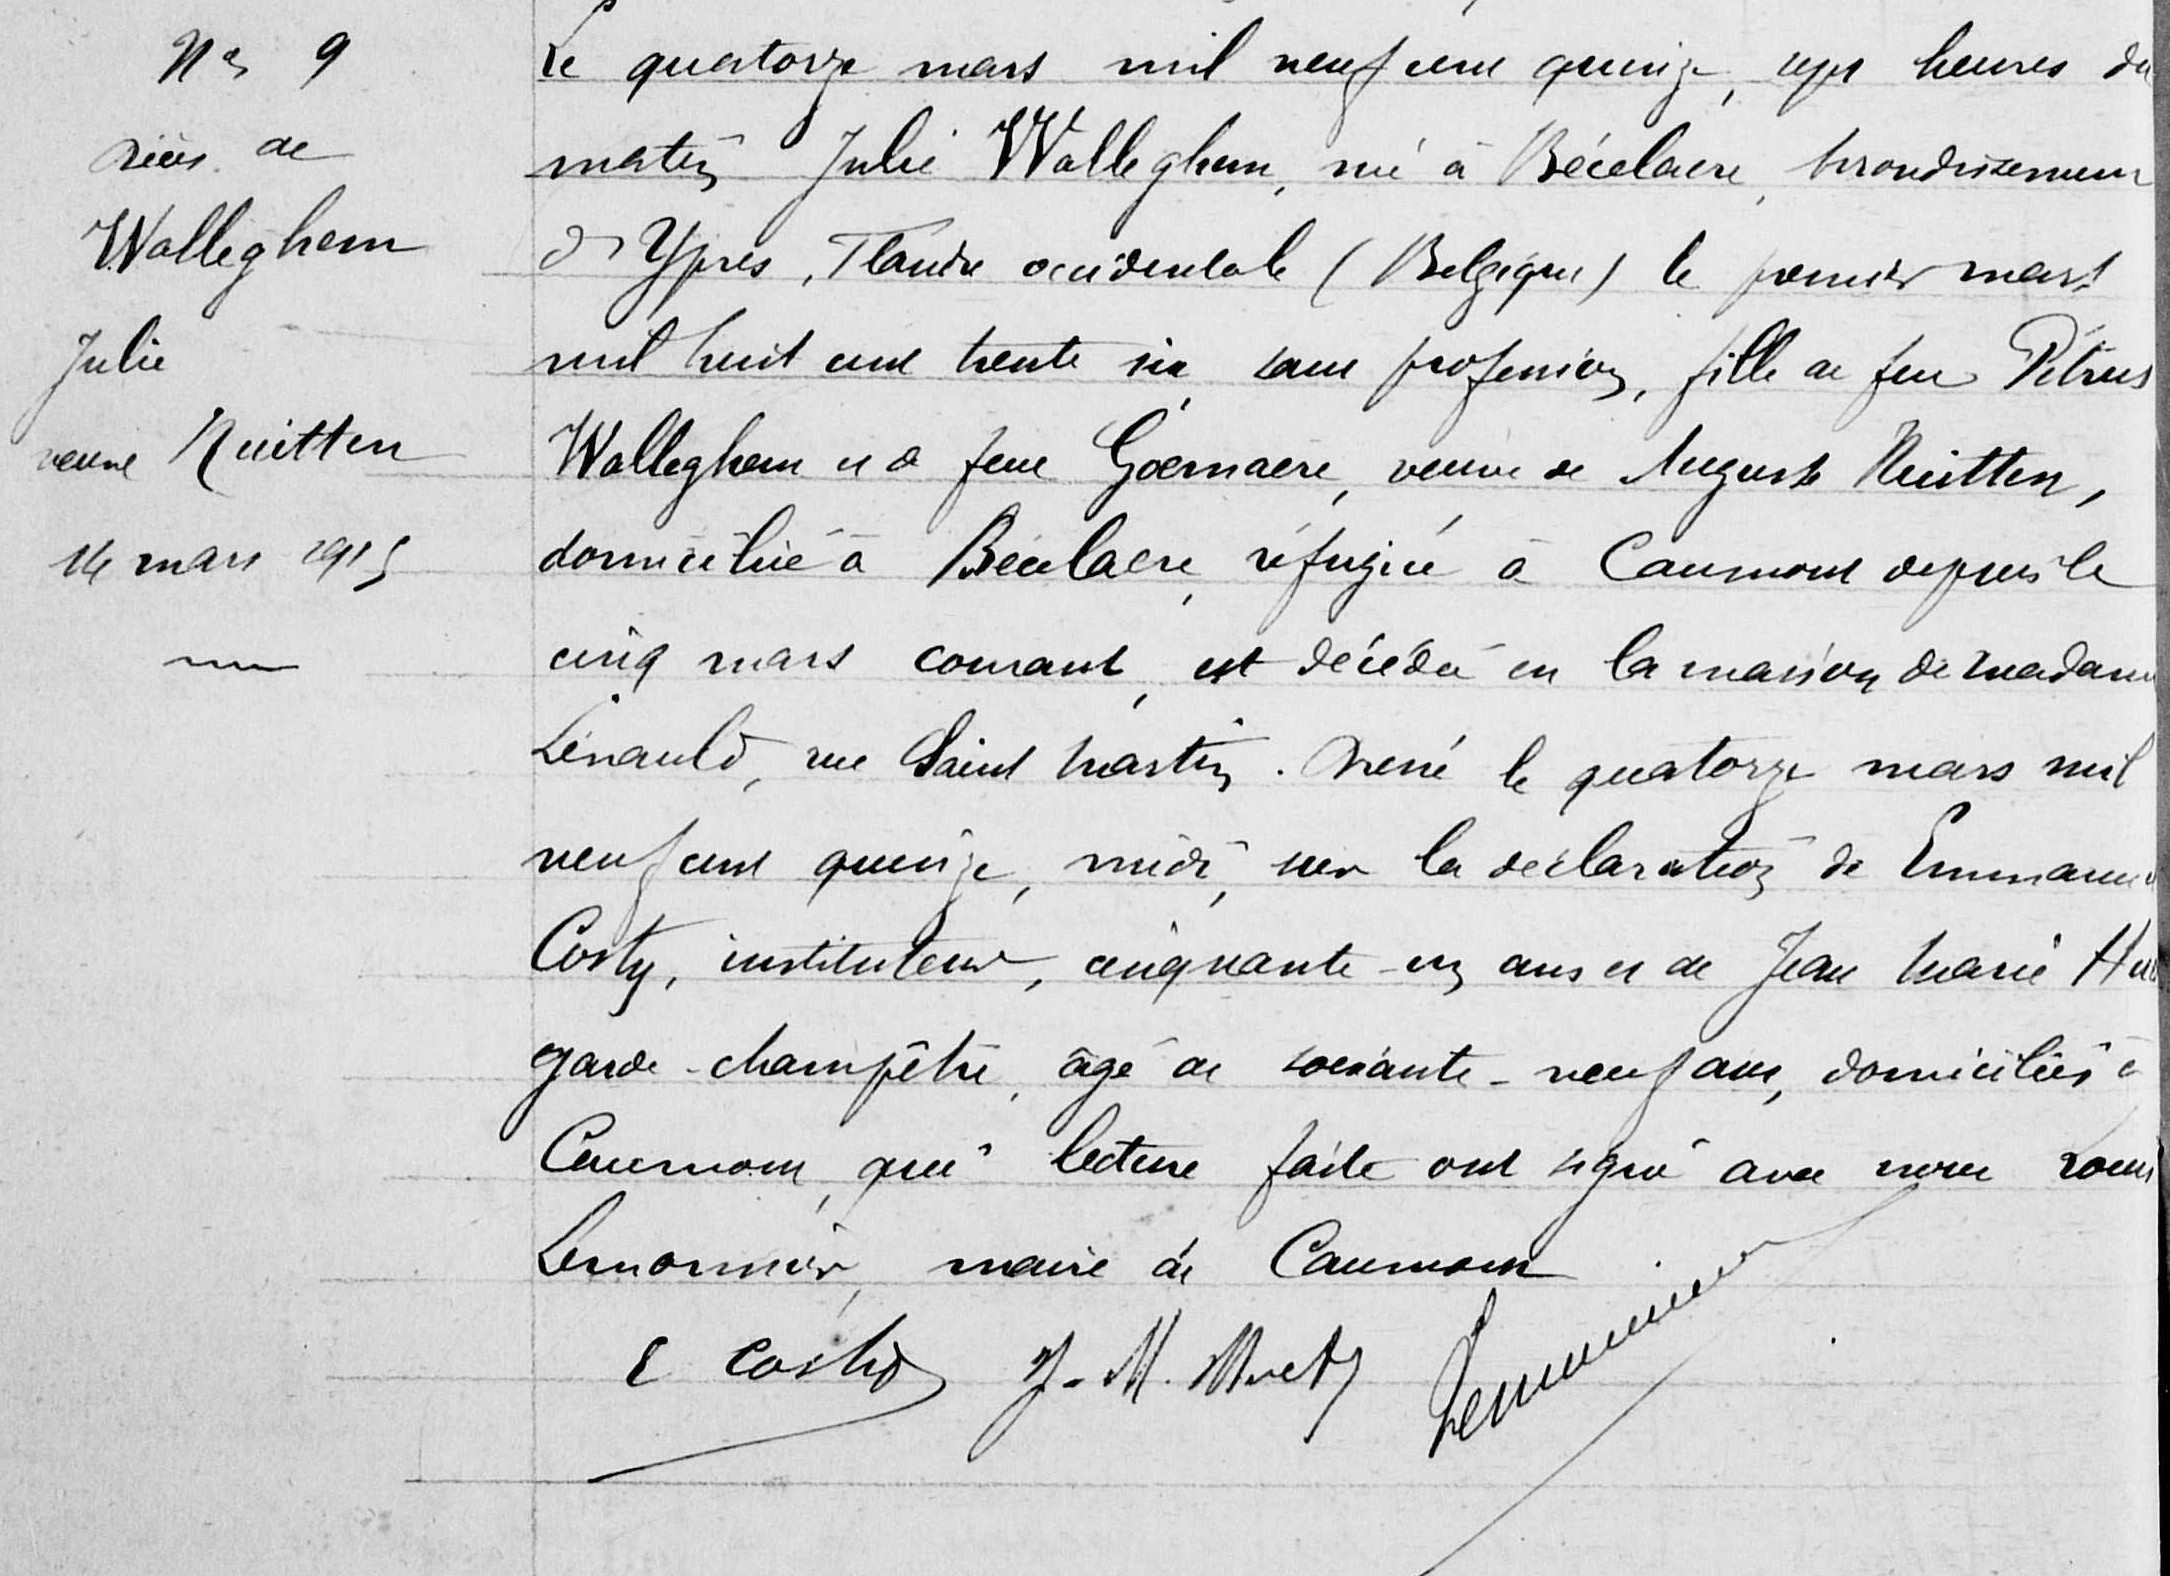 No 9
Décès de
Walleghem
Julie
veuve Nuitten
14 mars 1915
Le quatorze mars mil neuf cent quinze, sept heures du
matin Julie Walleghem, née à Bécelaere, arrondissement
d'Ypres, Flandre occidentale (Belgique) le premier mars
mil huit cent trente six, sans profession, fille de feu Pétrus
Walleghem et de feue Goemaere, veuve de Auguste Nuitten,
domiciliée à Bécelaere, réfugiée à Caumont depuis le
cinq mars courant, est décédée en la maison de madame
Lénauld, rue Saint Martin. Dressé le quatorze mars mil
neuf cent quinze, midi, sur la déclaration de Emmanuel
Costy, instituteur, cinquante-un ans et de Jean Marie
garde-champêtre, âgé de soixante-neuf ans, domiciliés à
Caumont, qui lecture faite ont signé avec nous Louis
Lemonnier, maire de Caumont
E Costy J-M. Lemonnier